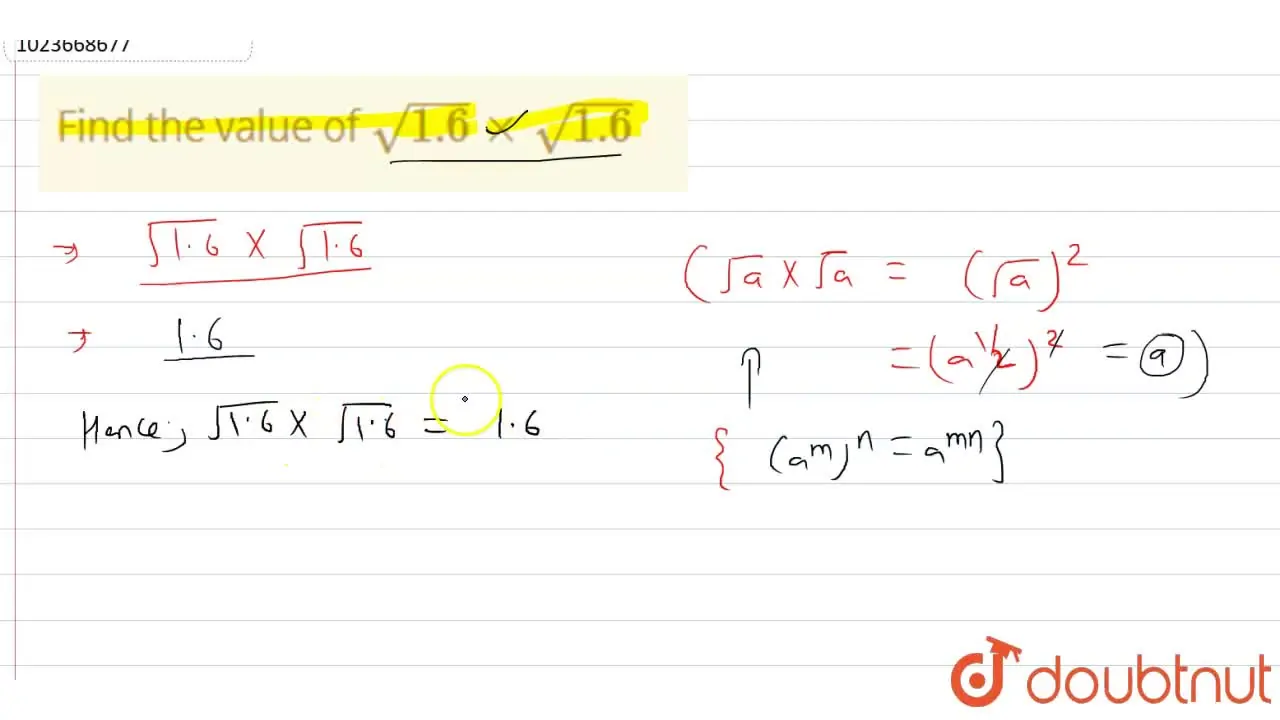 1023668677
Find the value of √1.6 × √1.6
→ √1.6 × √1.6
→ 1.6
Hence; √1.6 × √1.6 = 1.6
(√a × √a = (√a)²
= (a^1/2)² = a)
↑
{ (aᵐ)ⁿ = aᵐⁿ}
doubtnut